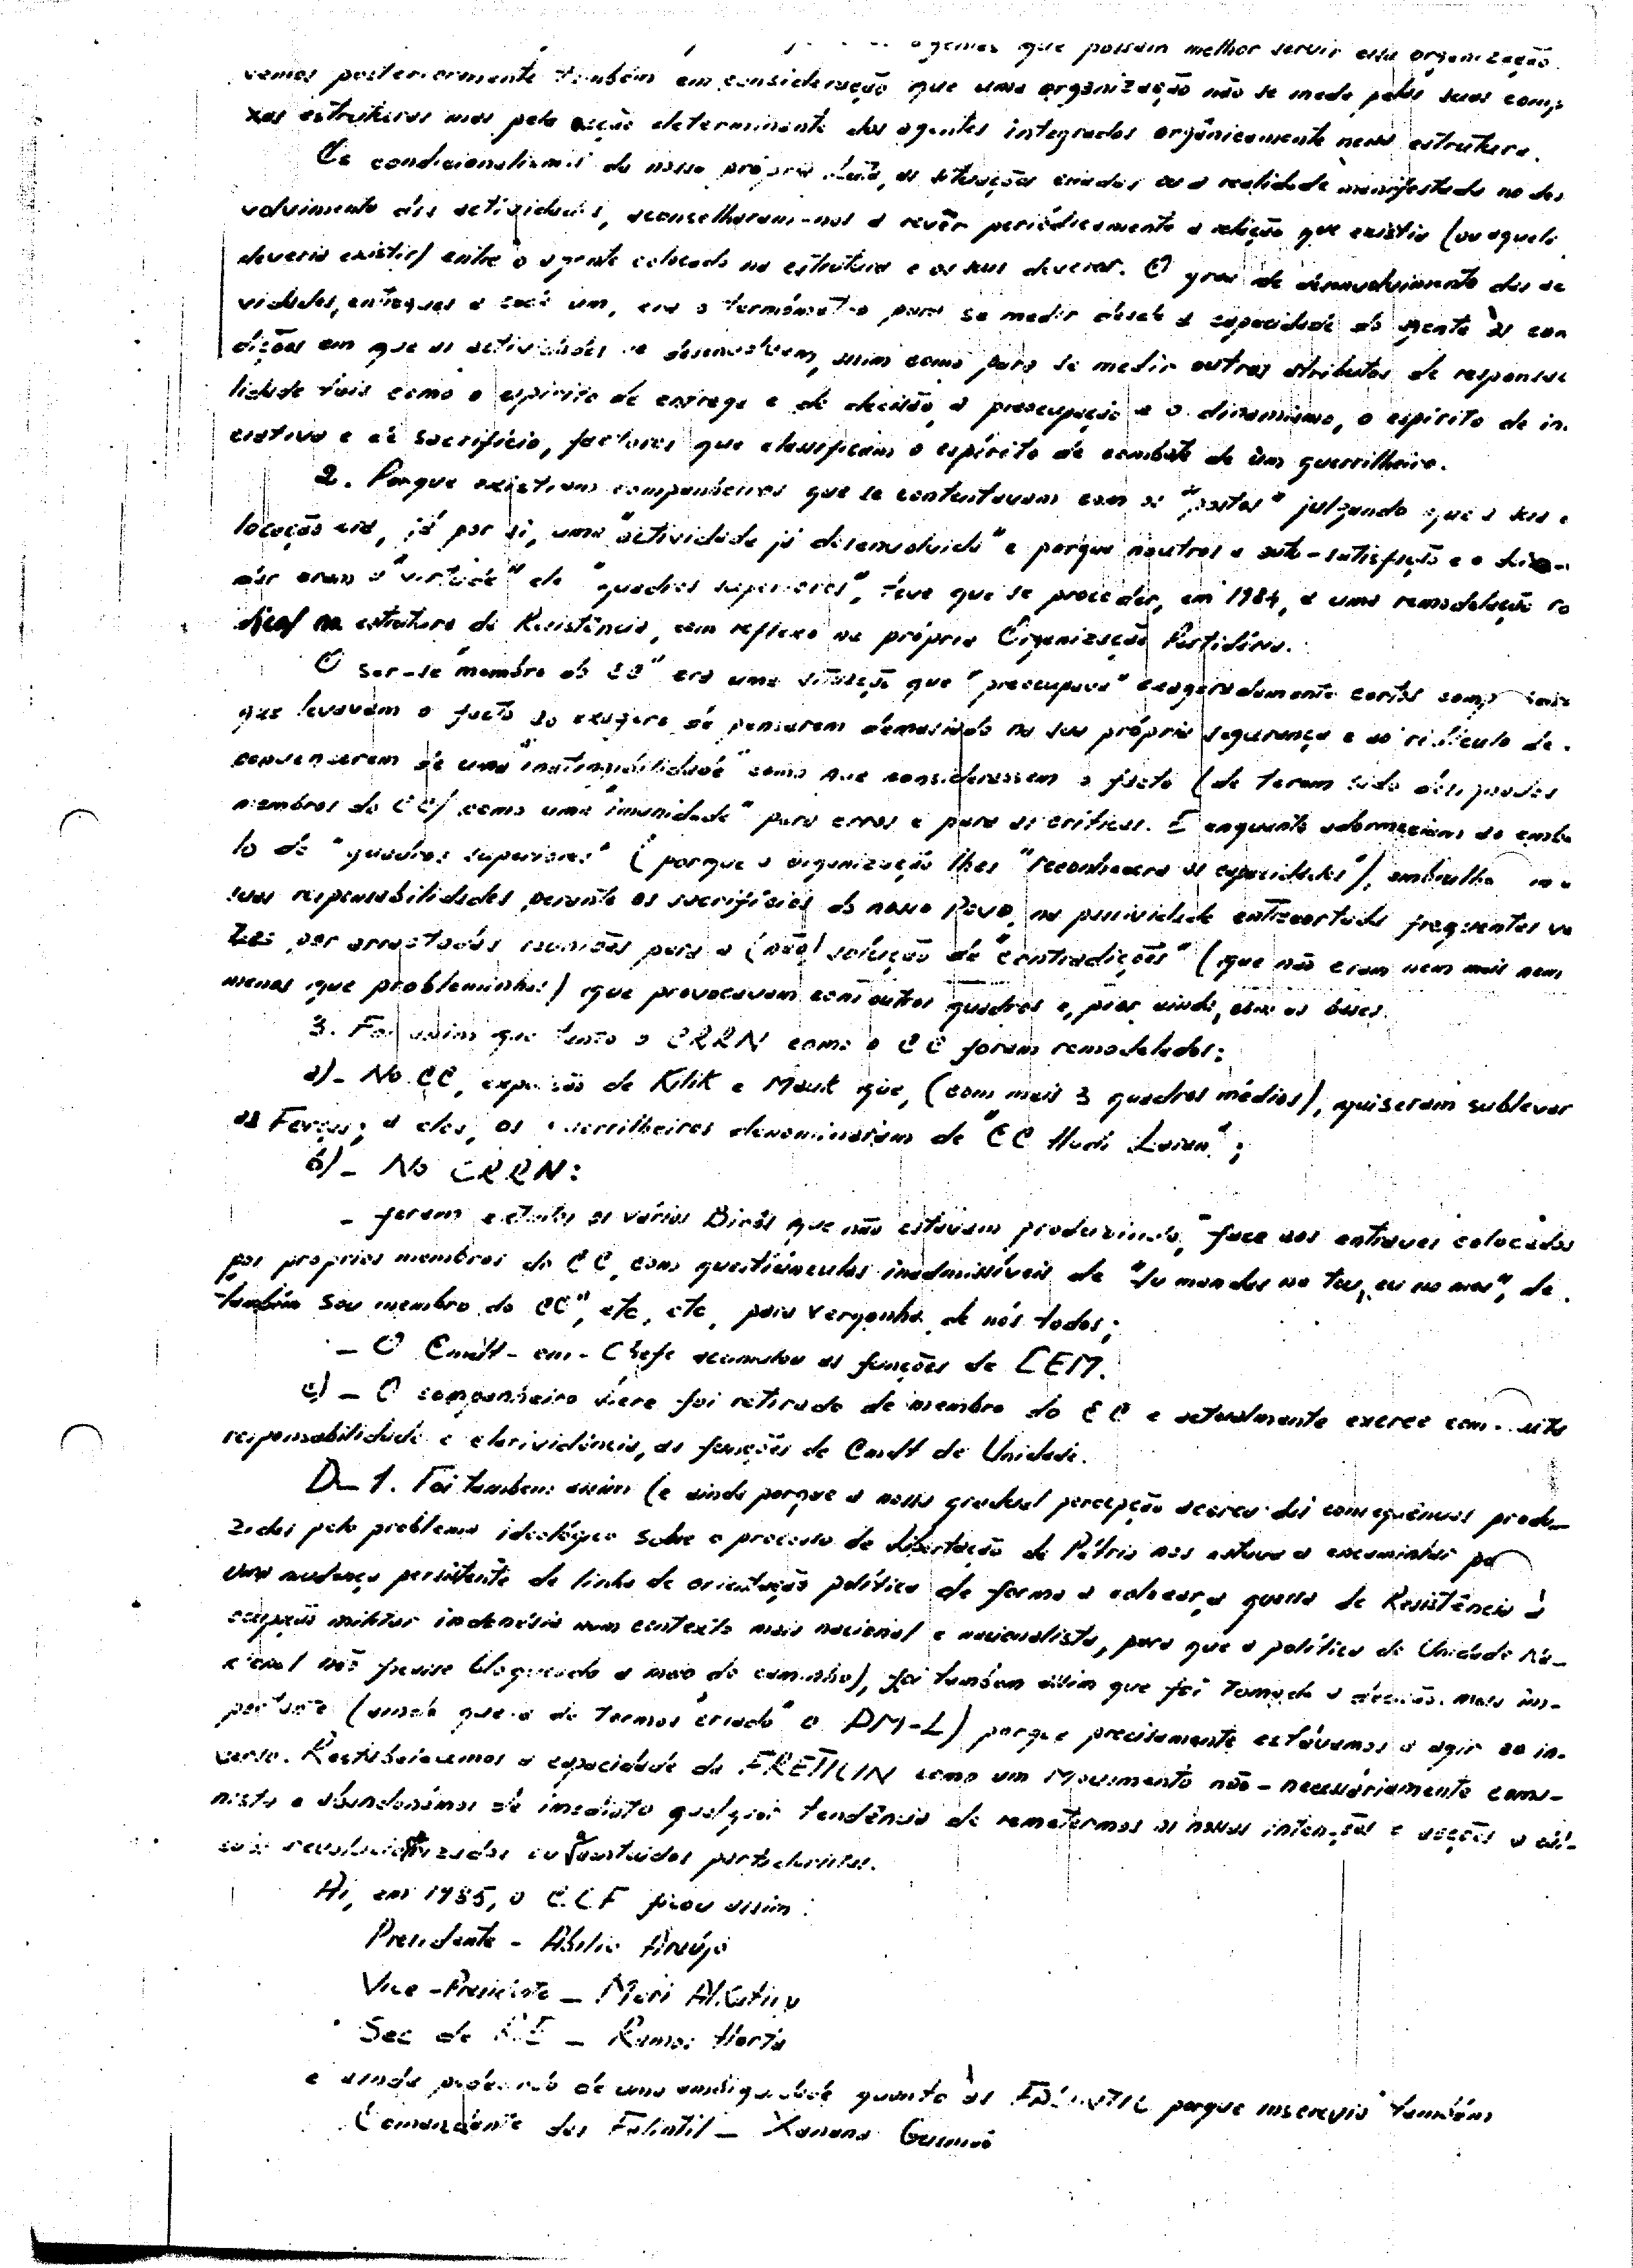 que possam melhor servir essa organização.
vemos posteriormente também em consideração que uma organização não se mede pelas suas comp
xas estruturas mas pela acção determinante dos agentes integrados orgânicamente nessa estrutura.
Os condicionalismos da nossa própria luta, as situações criadas ou a realidade manifestada no des
volvimento das actividades, aconselharam-nos a revêr periódicamente a relação que existia (ou aquela
deveria existir) entre o agente colocado na estrutura e os seus deveres. O grau de desenvolvimento das ac
vidades, entregues a cada um, era o termómetro para se medir desde a capacidade do agente às con
dições em que as actividades se desenvolvem, assim como para se medir outros atributos de responsa
lidade tais como o espírito de entrega e de decisão, a preocupação e o dinamismo, o espírito de in
ciativa e de sacrifício, factores que classificam o espírito de combate de um guerrilheiro.
2. Porque existiam companheiros que se contentavam com os "postos" julgando que a sua c
locação era, já por si, uma "actividade já desenvolvida" e porque noutros a auto-satisfação e o
eram a "virtude" de "quadros superiores", teve que se proceder, em 1984, a uma remodelação ra
dical na estrutura da Resistência, com reflexo na própria Organização Partidária.
O ser-se "membro do CC" era uma situação que "preocupava" exageradamente certos
que levavam o facto ao exagero de pensarem demasiado na sua própria segurança e ao ridículo de
convencerem de uma "inatingibilidade" como que considerassem o facto (de terem sido designados
membros do CC) como uma "imunidade" para erros e para as críticas. E enquanto adormeciam ao emba
lo de "quadros superiores" (porque a organização lhes "reconhecera as capacidades"),
suas responsabilidades perante os sacrifícios do nosso Povo, na passividade entrecortada frequentes ve
zes por arrastadas reuniões para a (não) solução de "contradições" (que não eram nem mais nem
menos que probleminhas) que provocavam com outros quadros e, pior ainda, com as bases.
3. Foi assim que tanto o CRRN como o CC foram remodelados:
a)- No CC, expulsão de Kilik e Mauk que, (com mais 3 quadros médios), quiseram sublevar
as Forças; a eles, os guerrilheiros denominaram de "CC Hudi Laran";
b)- No CRRN:
- foram extintos os vários Birôs que não estavam produzindo, face aos entraves colocados
por próprios membros do CC, com questiúnculas inadmissíveis de "tu mandas no teu, eu no meu", de
também sou membro do CC", etc, etc, para vergonha de nós todos;
- O Cmdt-em-Chefe acumulou as funções de CEM.
c)- O companheiro Sere foi retirado de membro do CC e actualmente exerce com muita
responsabilidade e clarividência, as funções de Cmdt de Unidade.
D- 1. Foi também assim (e ainda porque a nossa gradual percepção acerca das consequências produ-
zidas pelo problema ideológico sobre o processo de Libertação da Pátria nos estava a encaminhar pa
uma mudança persistente de linha de orientação política de forma a colocar a guerra de Resistência à
ocupação militar indonésia num contexto mais nacional e nacionalista, para que a política de Unidade Na-
cional não ficasse bloqueada a meio do caminho), foi também assim que foi tomada a decisão mais im-
portante (ainda que a de termos "criado" o PM-L) porque precisamente estávamos a agir ao in-
verso. Restabelecemos a capacidade da FRETILIN como um Movimento não-necessáriamente comu-
nista e abandonámos de imediato qualquer tendência de remetermos as nossas intenções e acções a
partidaristas.
Aí, em 1985, o C.C.F ficou assim:
Presidente - Abílio Araújo
Vice-Presidente - Mari Alkatiry
Sec de R.E - Ramos Horta
e ainda de uma ambiguidade quanto às FALINTIL porque inscrevia também
Comandante das Falintil - Xanana Gusmão